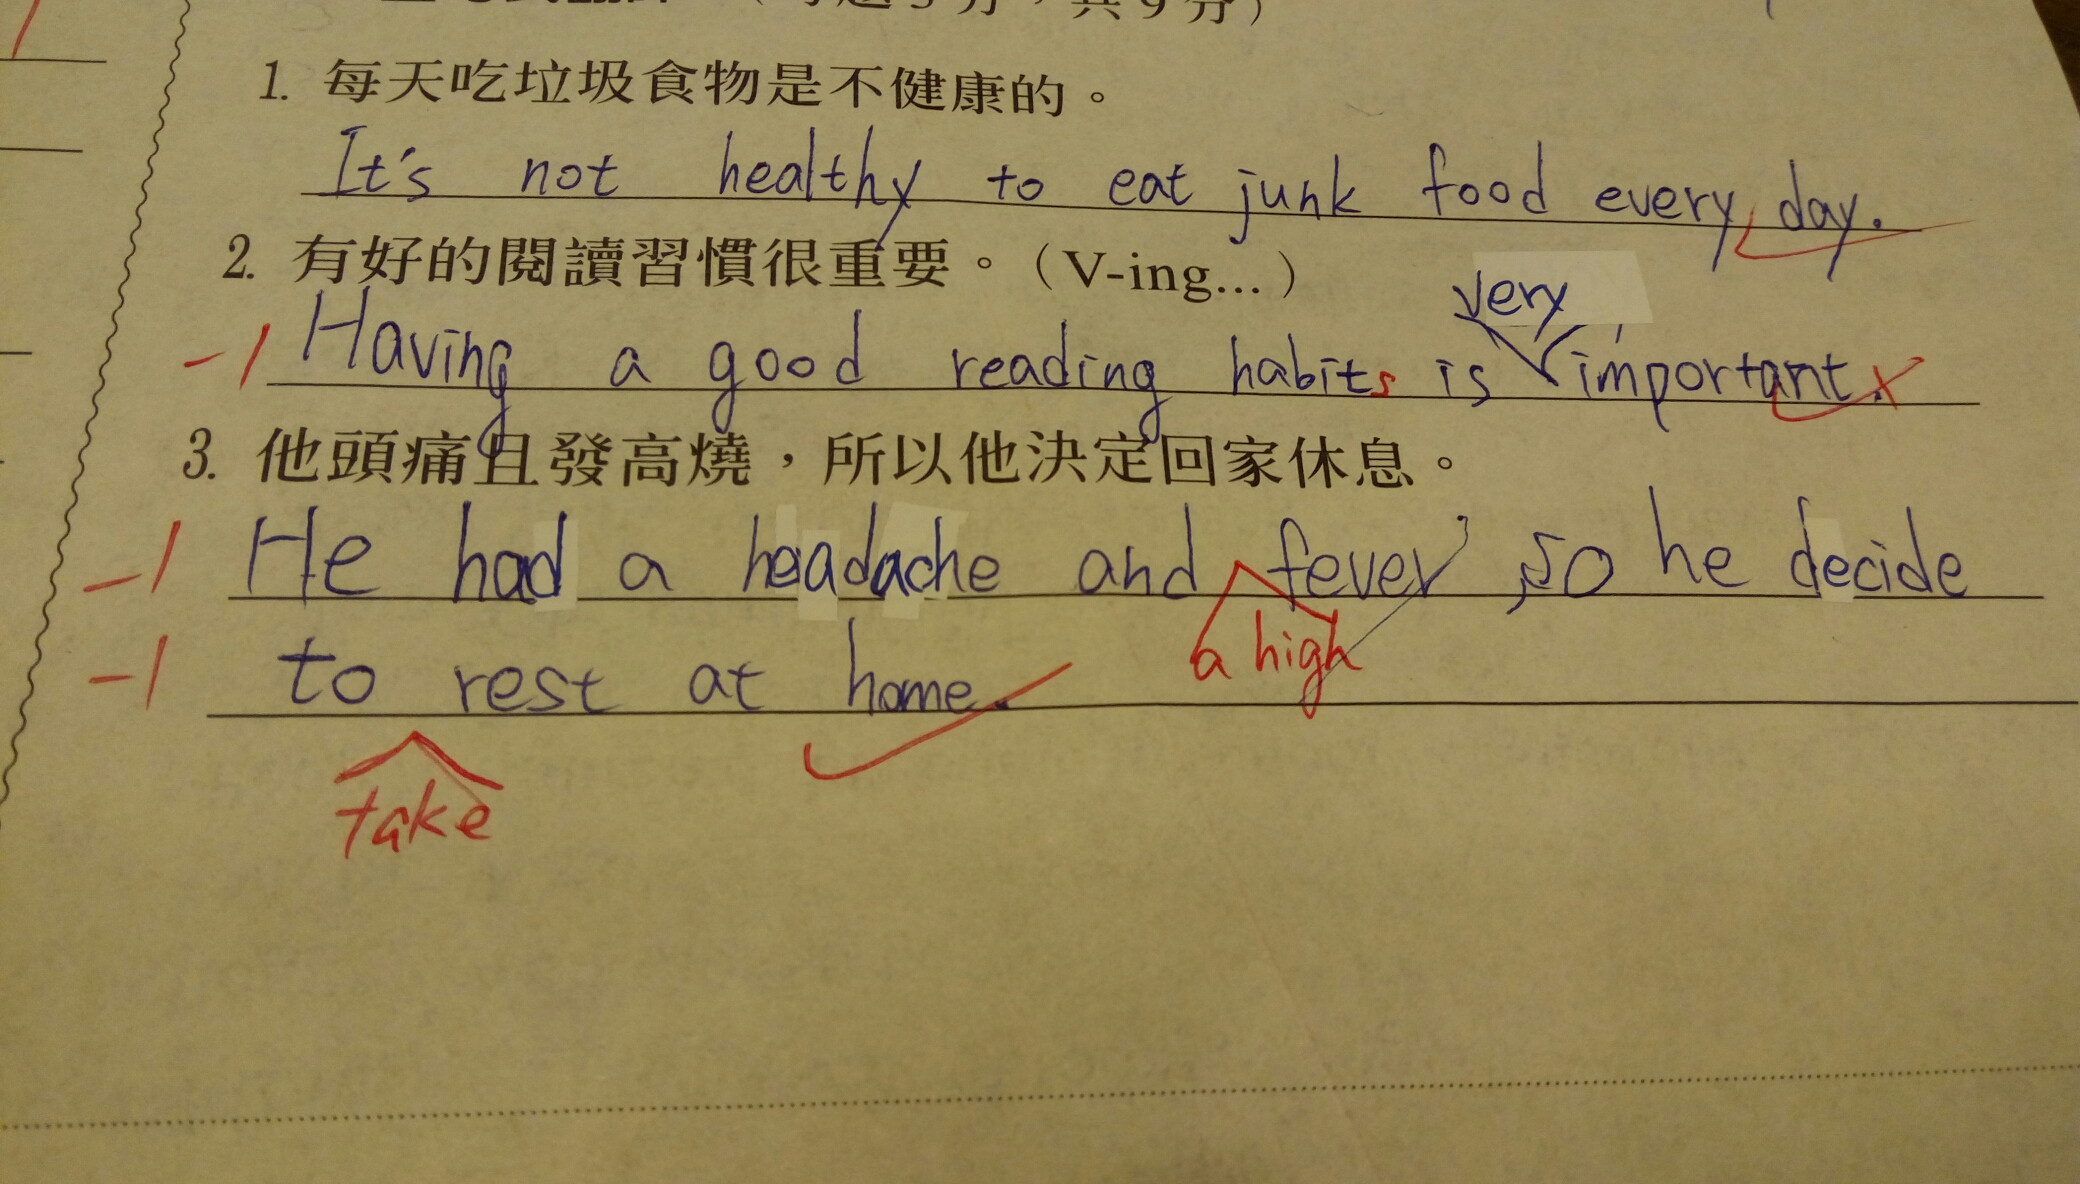 (每題3分，共9分)
1. 每天吃垃圾食物是不健康的。
It's not healthy to eat junk food every day.
2. 有好的閱讀習慣很重要。(V-ing...)
very
-1 Having a good reading habits is important.
3. 他頭痛且發高燒，所以他決定回家休息。
-1 He had a headache and fever, so he decide
a high
-1 to rest at home.
take